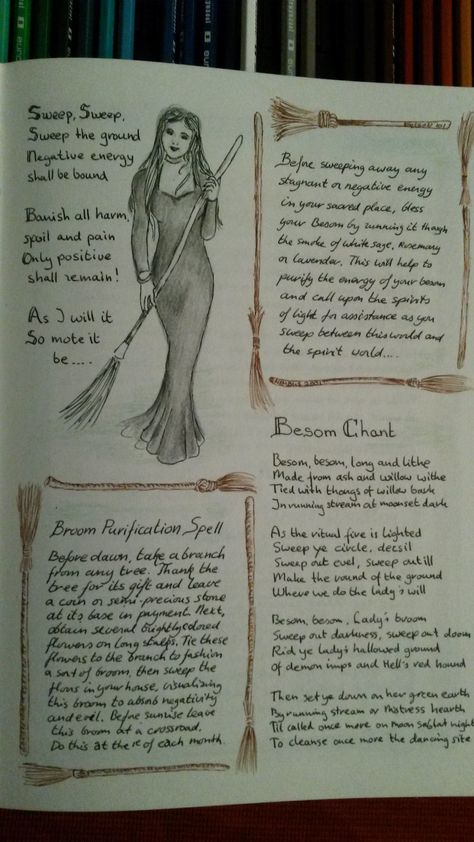 Sweep, Sweep,
Sweep the ground
Negative energy
shall be bound
Banish all harm,
spoil and pain
Only positive
shall remain!
As I will it
So mote it
be....
Before sweeping away any
stagnant or negative energy
in your sacred place, bless
your Besom by running it though
the smoke of white sage, Rosemary
or lavender. This will help to
purify the energy of your besom
and call upon the spirits
of light for assistance as you
sweep between this world and
the spirit world....
Broom Purification Spell
Before dawn, take a branch
from any tree. Thank the
tree for its gift and leave
a coin or semi-precious stone
at its base in payment. Next,
obtain several brightly colored
flowers on long stems. Tie these
flowers to the branch to fashion
a sort of broom, then sweep the
floors in your house, visualizing
this broom to absorb negativity
and evil. Before sunrise leave
this broom at a crossroad.
Do this at the 1st of each month.
Besom Chant
Besom, besom, long and lithe
Made from ash and willow withe
Tied with thongs of willow bark
In running stream at moonset dark
As the ritual fire is lighted
Sweep ye circle, deosil
Sweep out evel, sweep out ill
Make the round of the ground
Where we do the lady's will
Besom, besom, Lady's broom
Sweep out darkness, sweep out doom
Rid ye Lady's hallowed ground
of demon imps and Hell's red hound
Then set ye down on her green earth
By running stream or Mistress hearth
Til called once more on moon sabbat night
To cleanse once more the dancing site